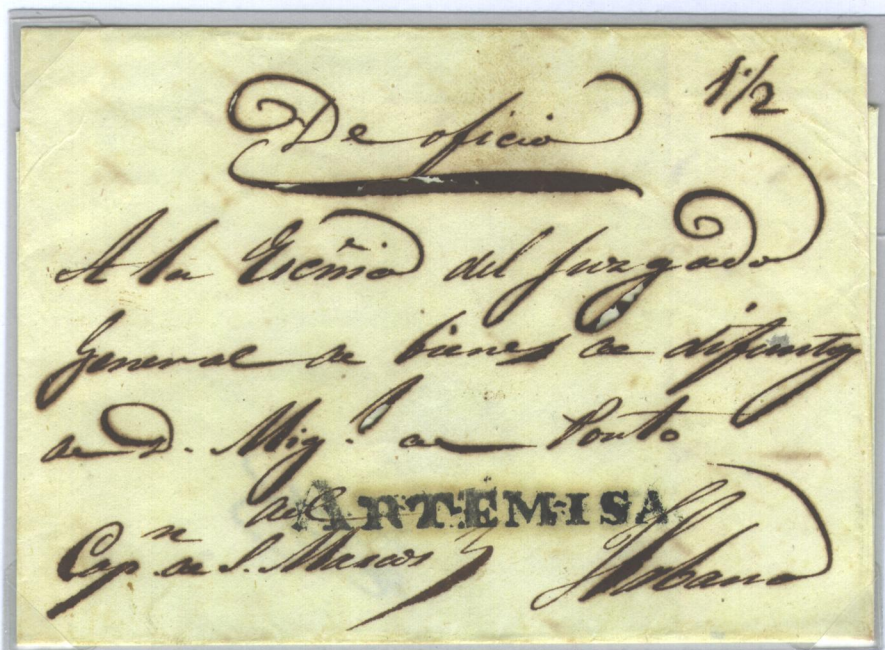 De oficio 1 1/2
A la Escñia del Juzgado
General de bienes de difuntos
de D. Mig.l de Porto
ARTEMISA
del
Cap.n de S. Marcos Habana